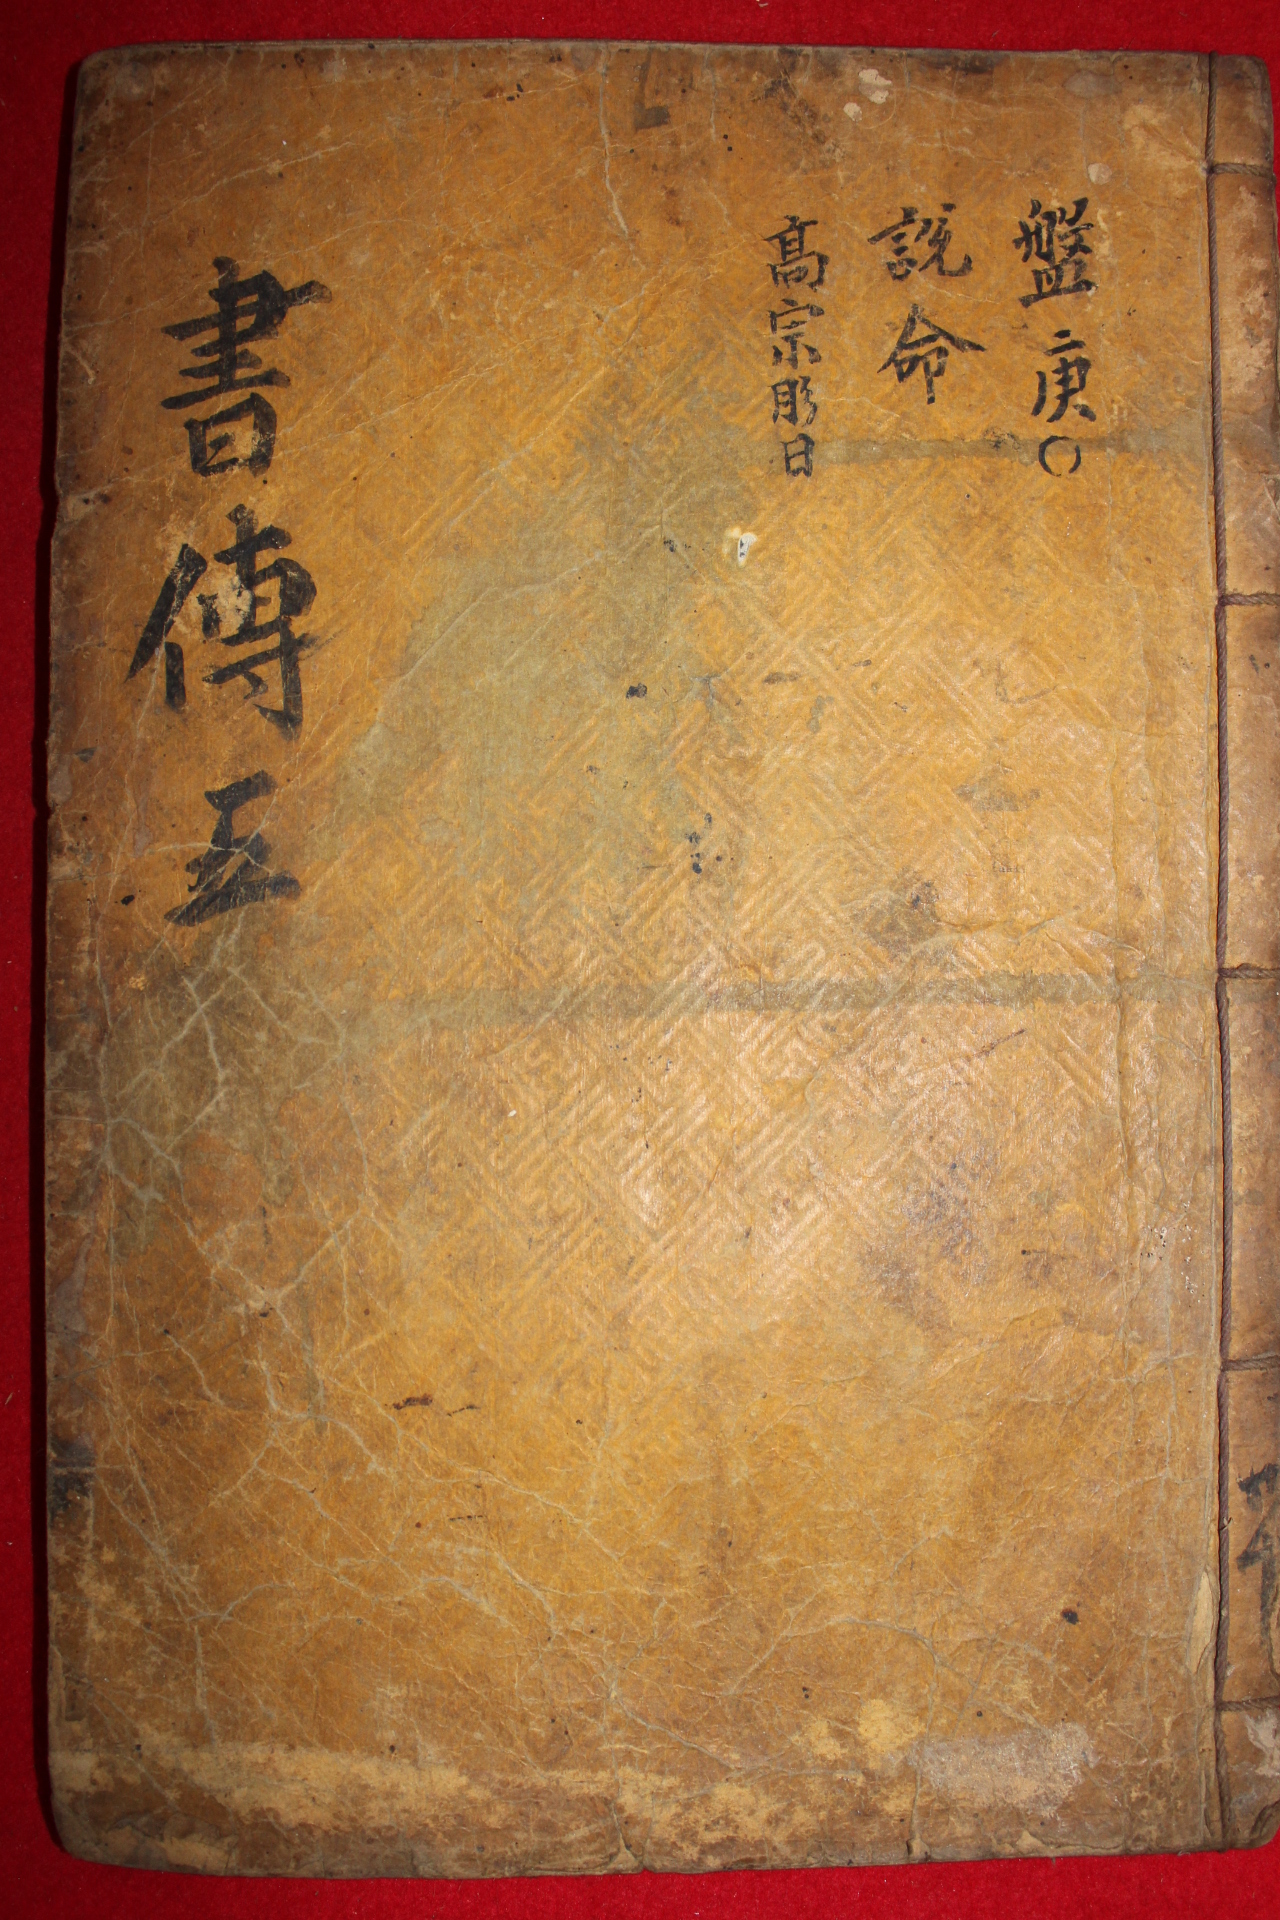 盤庚〇
說命
高宗肜日
書傳 五